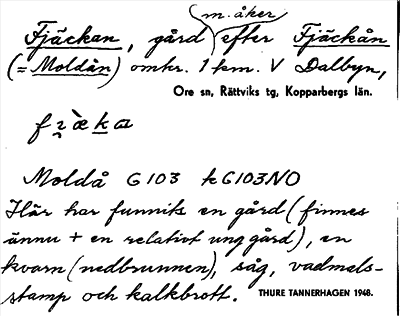 m. åker
Fjäckan, gård efter Fjäckån
(= Moldån) omkr. 1 km. V Dalbyn,
Ore sn, Rättviks tg, Kopparbergs län.
Moldå G 103 kG103NO
Här har funnits en gård (finnes
ännu + en relativt ung gård), en
kvarn (nedbrunnen), såg, vadmals-
stamp och kalkbrott.
THURE TANNERHAGEN 1948.